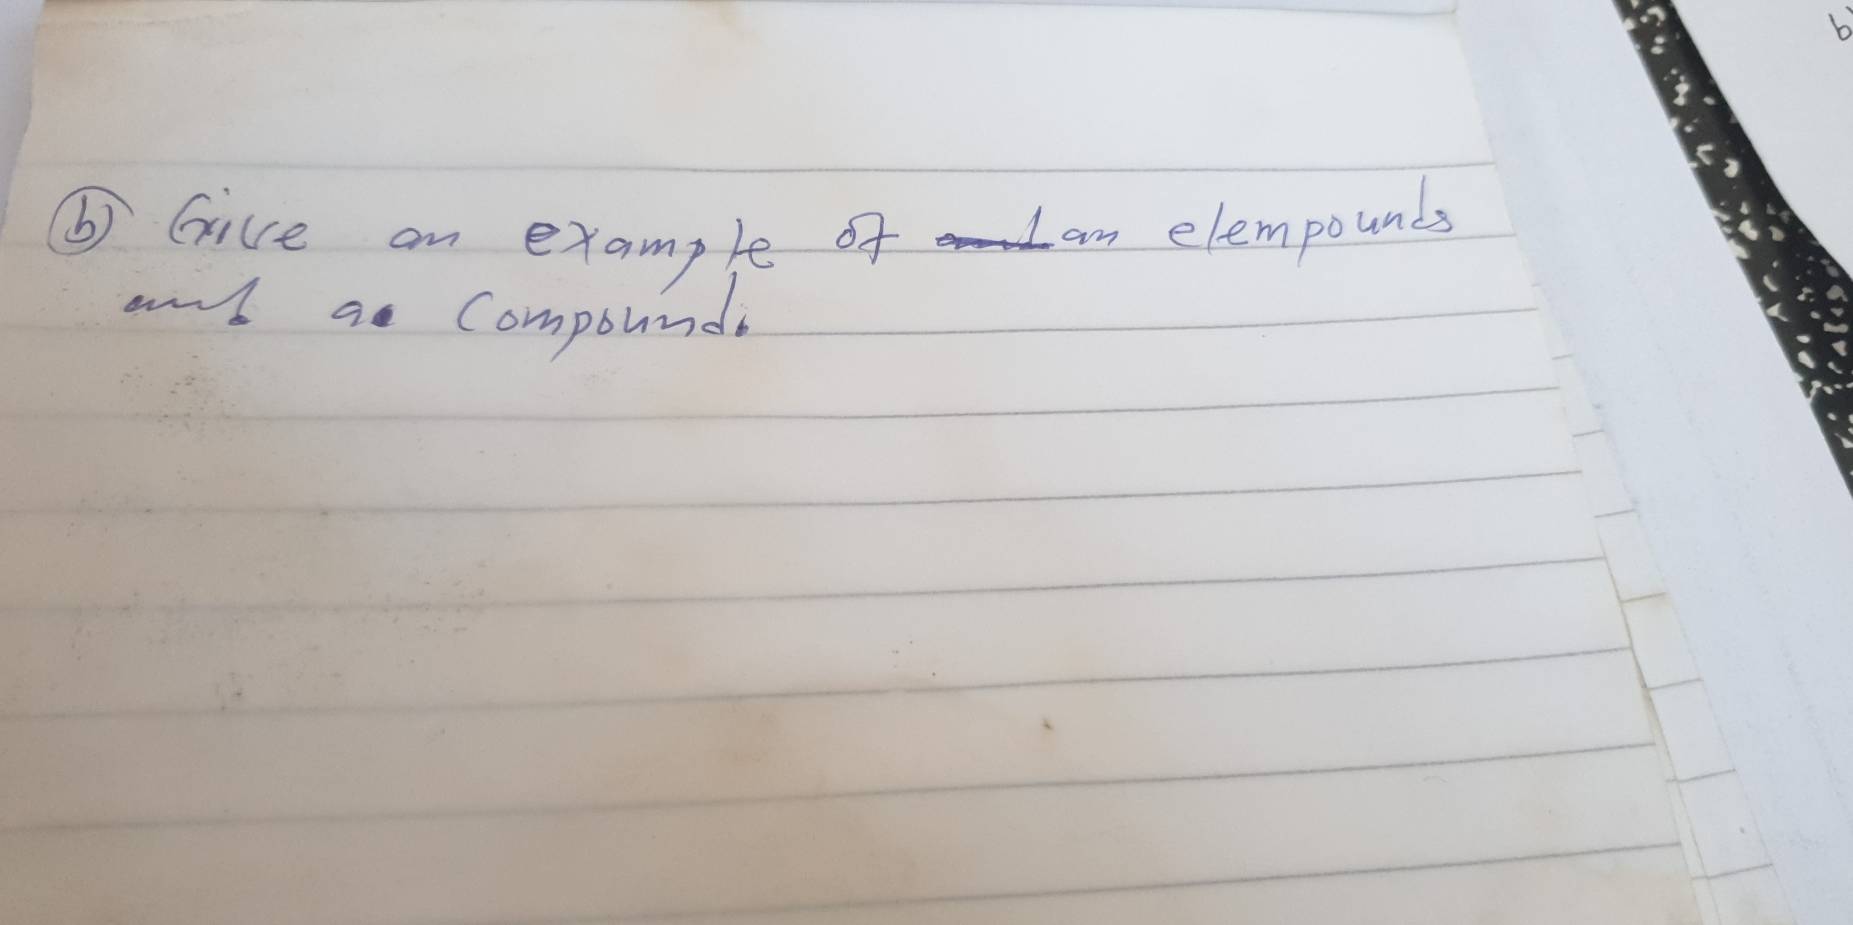 b) Give an example of an elempounds
and a compound.
b